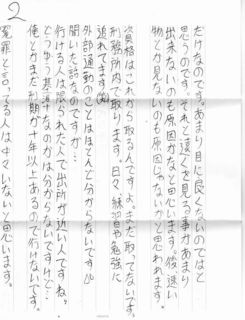 2
だけなのです。あまり目に良くないのではと
思うのです。それと遠くを見る事があまり
出来ないのも原因かなと思います。後、速い
物とか見ないのも原因じゃないかと思われます。
次資格はこれから取るんですよ。まだ取ってないです。
刑務所内で取ります。日々、練習や勉強に
追れてます(笑)
外部通勤のことはほとんど分からないです
聞いた話なのですが…
行ける人は限られた人で出所が近い人ですね。
どうゆう基準なのかは分からないですけど…
俺とかまだ刑期が十年以上あるので行けないです。
冤罪と言ってる人は中々いないと思います。